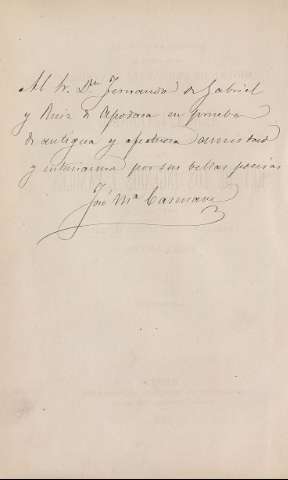 Al Sr. Dn. Fernando de Gabriel
y Ruiz de Apodaca en prueba
de antigua y afectuosa amistad
y por sus bellas poesías
José Ma.